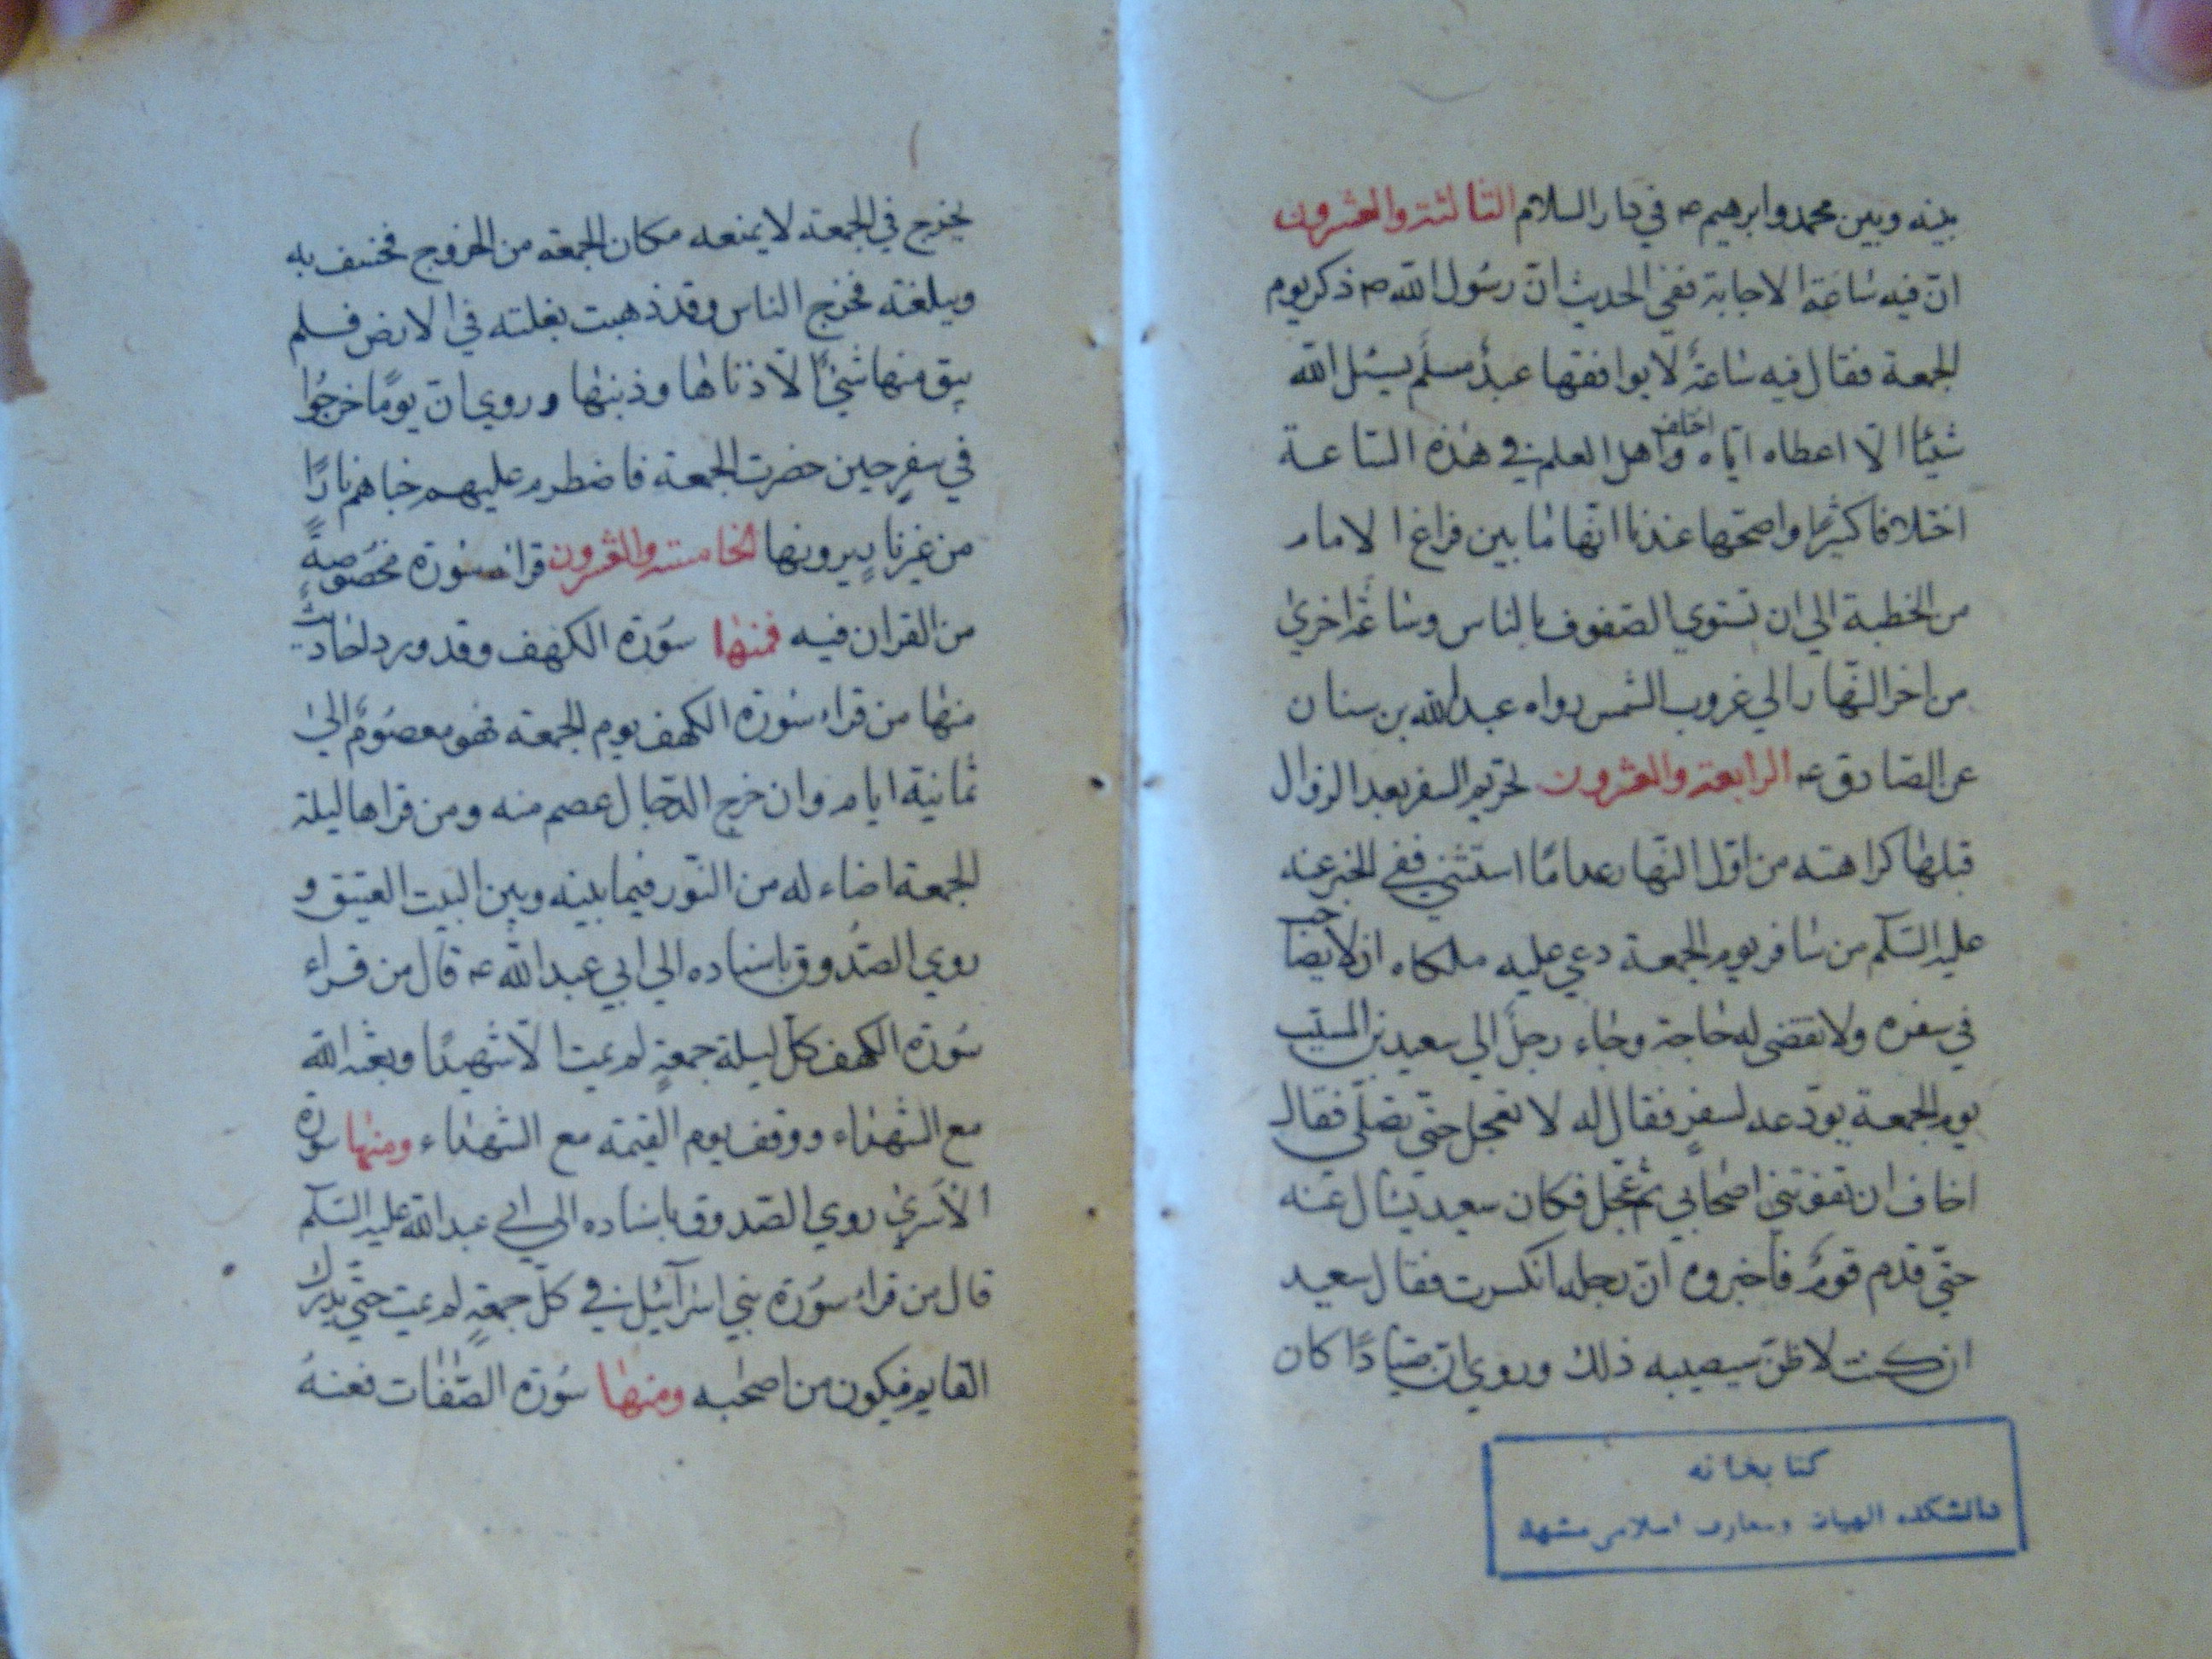 بينه وبين محمد وابرهيم ع في دار السلام الثالثة والعشرون
انّ فيه ساعة الاجابة ففي الحديث انّ رسول الله ص ذكر يوم
الجمعة فقال فيه ساعةٌ لا يوافقها عبدٌ مسلم يسئل الله
شيئا الّا اعطاه ايّاه واختلف اهل العلم في هذه الساعة
اختلافا كثيرًا واصحها عندنا انّها ما بين فراغ الامام
من الخطبة الي ان تستوي الصفوف بالناس وساعة اخري
من اخر النّهار الي غروب الشمس رواه عبد الله بن سنان
عن الصادق ع الرابعة والعشرون تحريم السفر بعد الزوال
قبلها كراهته من اوّل النّهار عدا ما استثني ففي الخبر عنه
عليه السّلم من سافر يوم الجمعة دعي عليه ملكاه ان لا يصاحب
في سفره ولا تقضي له حاجة وجاء رجل الي سعيد بن المسيّب
يوم الجمعة يودّعه لسفرٍ فقال له لا تعجل حتّي تصلّي فقال
اخاف ان تفوتني اصحابي ثم عجّل فكان سعيد يسال عنه
حتّي قدم قومٌ فاخبروه انّ رجله انكسرت فقال سعيد
ان كنت لاظنّ سيصيبه ذلك وروي انّ صيّادًا كان
كتابخانه
دانشكده الهيات ومعارف اسلامي مشهد
يخرج في الجمعة لا يمنعه مكان الجمعة من الخروج فخسف به
وببلغته فخرج الناس وقد ذهبت بغلته في الارض فلم
يبق منها شيئٌ الّا ذناها وذنبها وروي انّ يومًا خرجُوا
في سفرٍ حين حضرت الجمعة فاضطرم عليهم خباهم نارًا
من غير نارٍ يرونها الخامسة والعشرون قراءة سورة مخصوصةٍ
من القران فيه فمنها سورة الكهف وقد ورد احاديث
منها من قراء سورة الكهف يوم الجمعة فهو معصوم الي
ثمانية ايام وان خرج الدّجال عصم منه ومن قراها ليلة
الجمعة اضاء له من النّور فيما بينه وبين البيت العتيق و
روي الصدوق باسناده الي ابي عبد الله ع قال من قراء
سورة الكهف كلّ ليلة جمعةٍ لم يمت الّا شهيدًا وبعثه الله
مع الشهداء ووقف يوم القيمة مع الشهداء ومنها سورة
الاسري روي الصدوق باسناده الي ابي عبد الله عليه السّلم
قال من قراء سورة بني اسرآئيل في كلّ جمعةٍ لم يمت حتّي يدرك
القايم فيكون من اصحبه ومنها سورة الصّفات فعنه